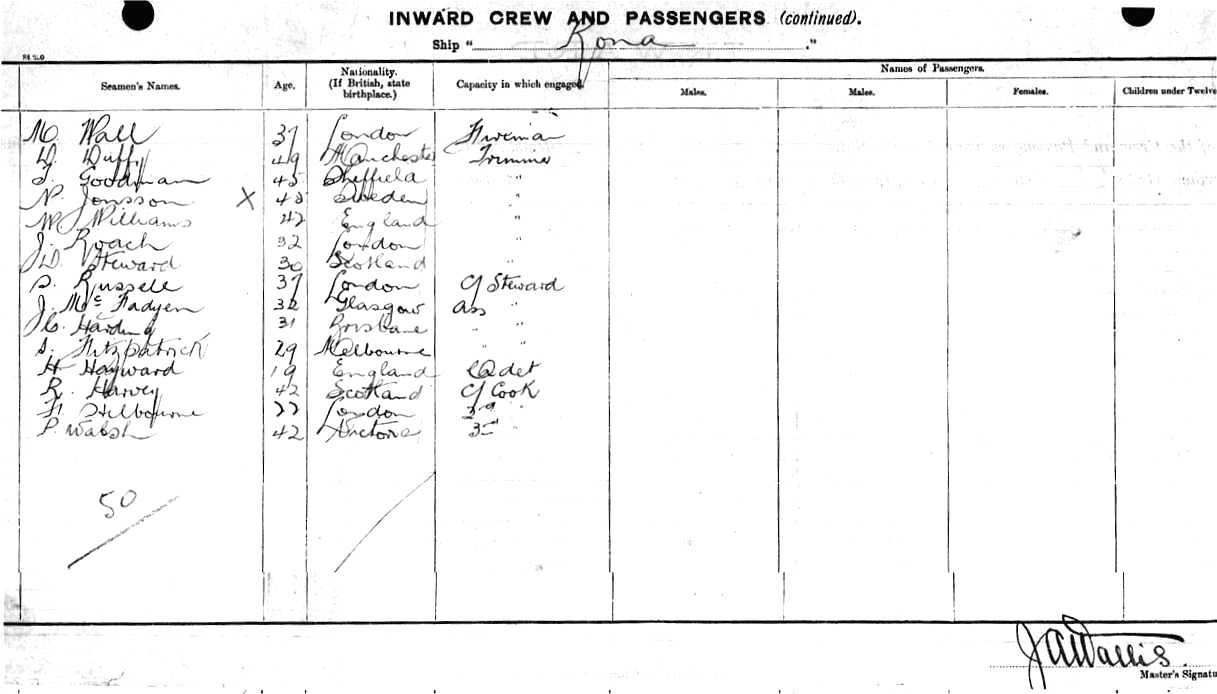 INWARD CREW AND PASSENGERS (continued).
Ship " Rona ."
Seamen's Names. Age. Nationality. (If British, state birthplace.) Capacity in which engaged. Names of Passengers.
Males. Males. Females. Children under Twelve
M. Wall 37 London Fireman
D. Duffy 49 Manchester Trimmer
T. Goodman 45 Sheffield "
N. Jonsson X 48 Sweden "
W. Williams 42 England "
J. Roach 32 London "
J D. Steward 30 Scotland "
S. Russell 37 London C/ Steward
J. McFadyen 32 Glasgow Ass "
J C. Harding 31 Brisbane " "
S. Fitzpatrick 29 Melbourne " "
H Hayward 19 England Cadet
R. Harvey 42 Scotland C/ Cook
F. Hilbourne 22 London 2nd "
P. Walsh 42 Victoria 3rd "
50
JAWallis.
Master's Signatu